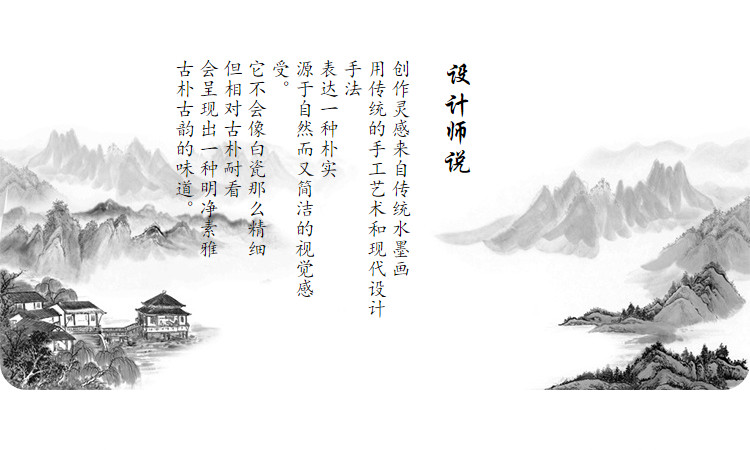 设计师说
创作灵感来自传统水墨画
用传统的手工艺术和现代设计
手法
表达一种朴实
源于自然而又简洁的视觉感
受。
它不会像白瓷那么精细
但相对古朴耐看
会呈现出一种明净素雅
古朴古韵的味道。